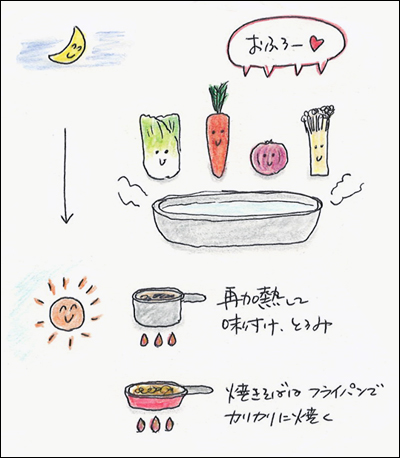 おふろー♥
再加熱して
味付け、とろみ
焼きそばは フライパンで
カリカリに焼く